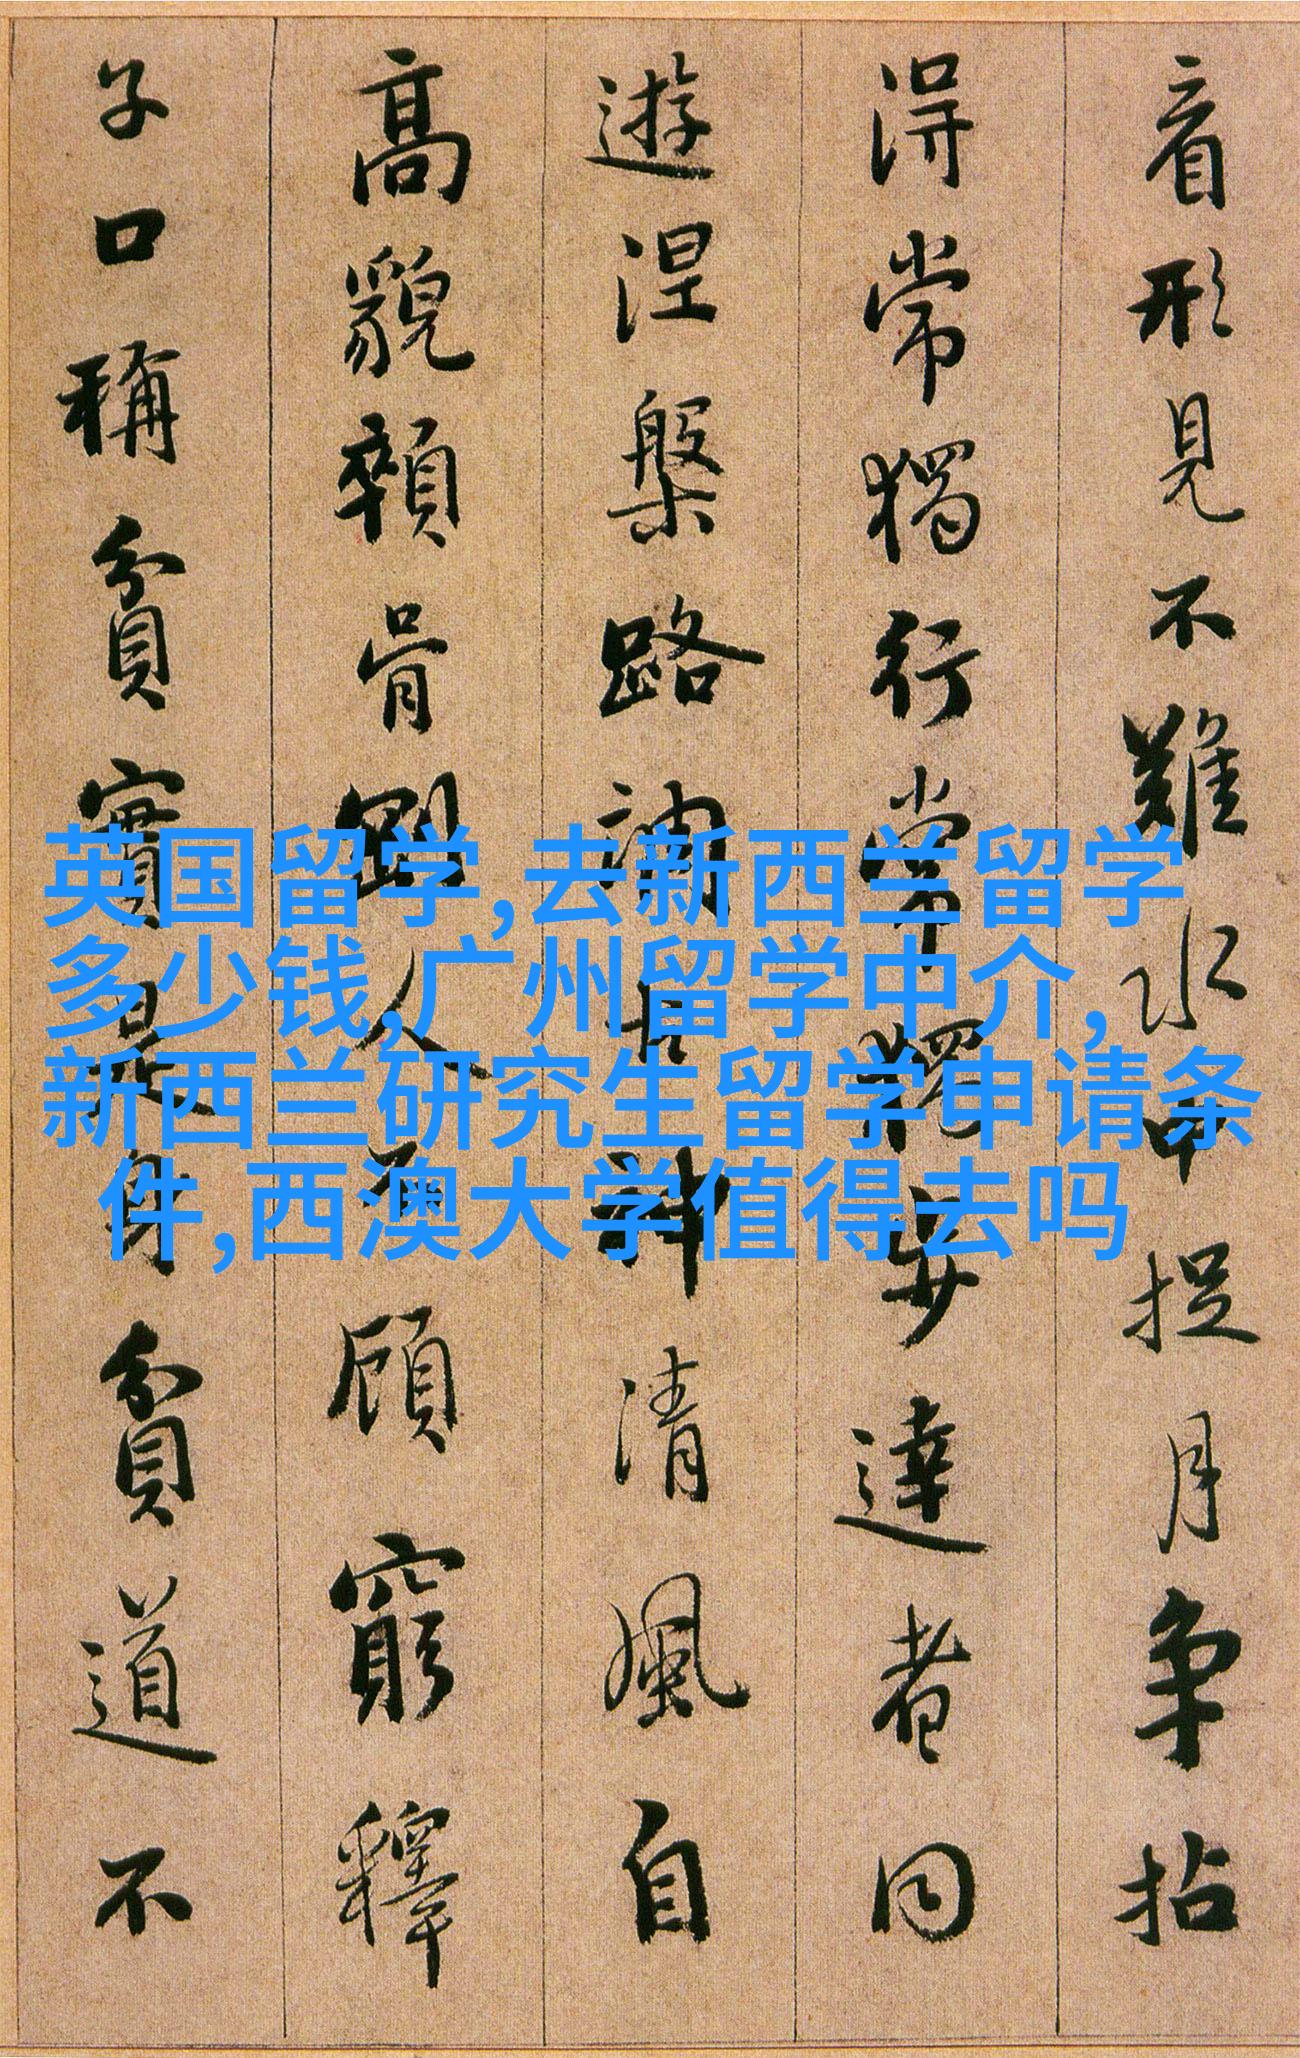 看形見不難水中捉月爭拈
得常獨行常獨步達者同
遊涅槃路調古神清風自
高貌顇骨剛人不顧窮釋
子口稱貧實是身貧道不
英国留学,去新西兰留学
多少钱,广州留学中介,
新西兰研究生留学申请条
件,西澳大学值得去吗